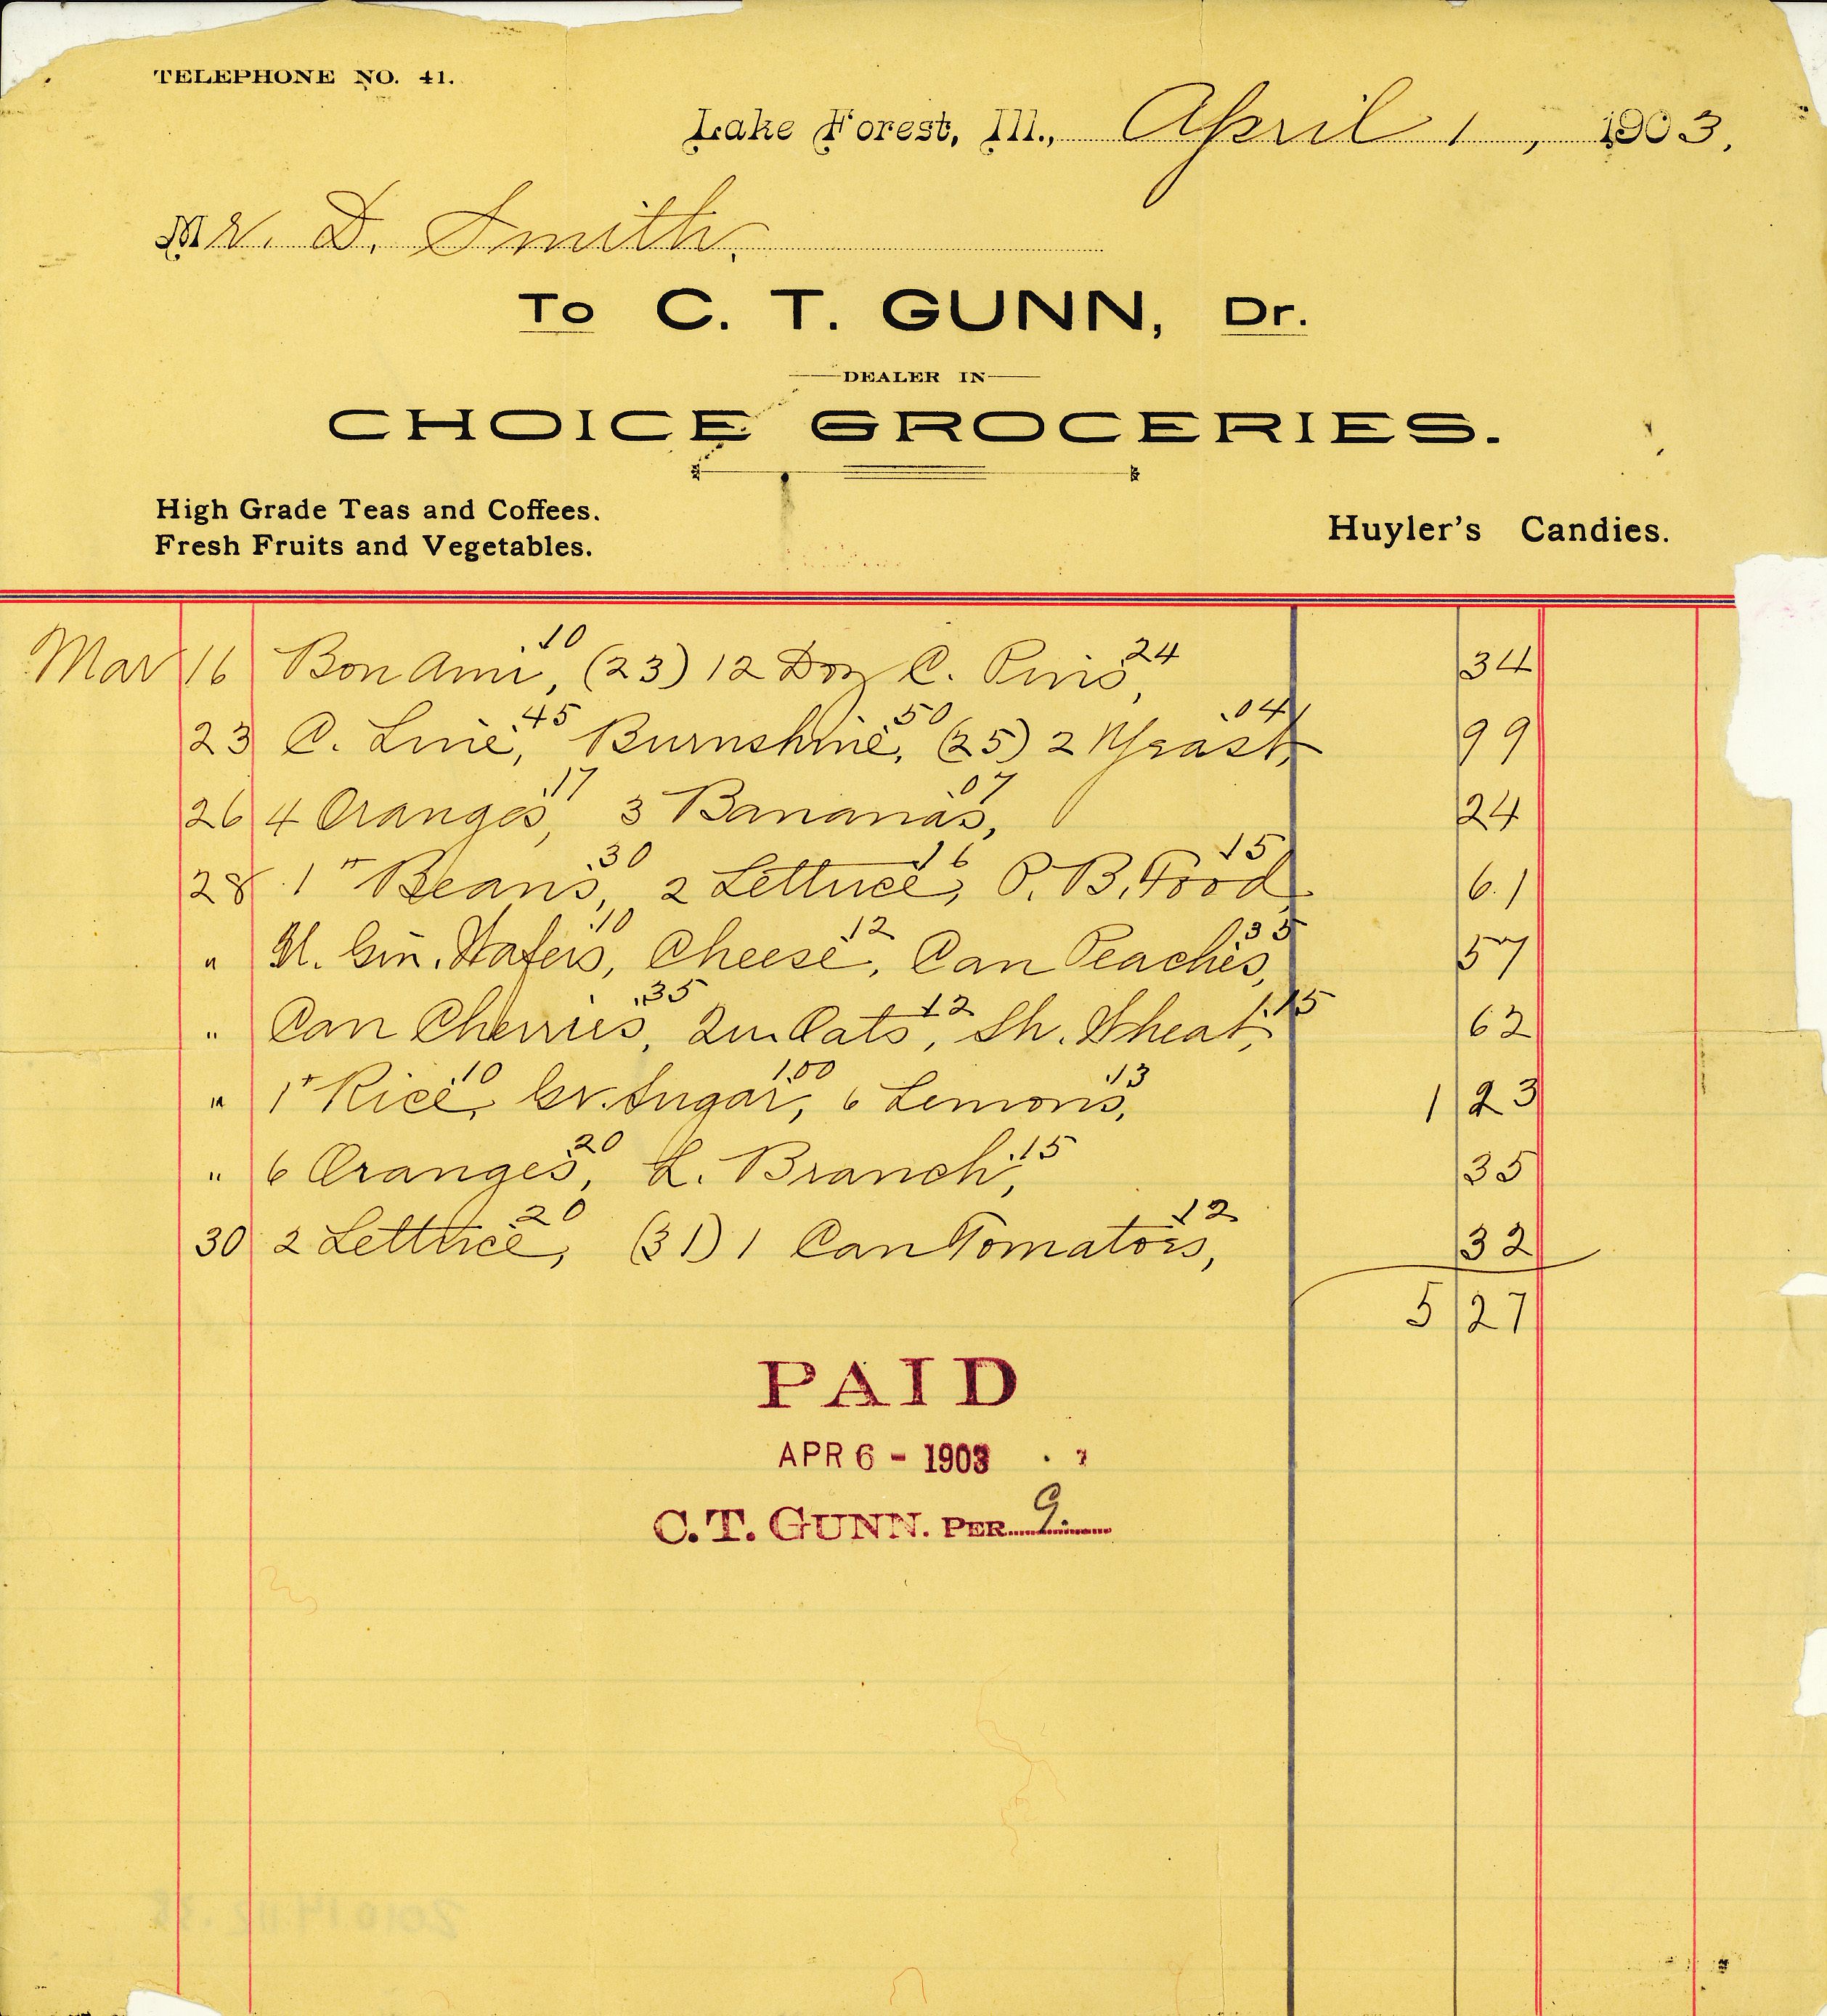 TELEPHONE NO. 41.
Lake Forest, Ill., April 1, 1903.
Mr. D. Smith,
To C. T. GUNN, Dr.
DEALER IN
CHOICE GROCERIES.
High Grade Teas and Coffees.
Fresh Fruits and Vegetables.
Huyler's Candies.
Mar 16 Bon Ami, .10 (23) 12 Doz C. Pins, .24 34
23 C. Line, .45 Burnshine, .50 (25) 2 Yeast, .04 99
26 4 Oranges, .17 3 Bananas, .07 24
28 1# Beans, .30 2 Lettuce, .16 P. B. Food, .15 61
" Gin. Wafers, .10 Cheese, .12 Can Peaches, .35 57
" Can Cherries, .35 Qu. Oats, .12 Sh. Wheat, .15 62
" 1# Rice, .10 Gr. Sugar, 1.00 6 Lemons, .13 1 23
" 6 Oranges, .20 L. Branch, .15 35
30 2 Lettuce, .20 (31) 1 Can Tomatoes, .12 32
5 27
PAID
APR 6 - 1903
C. T. GUNN. PER G.